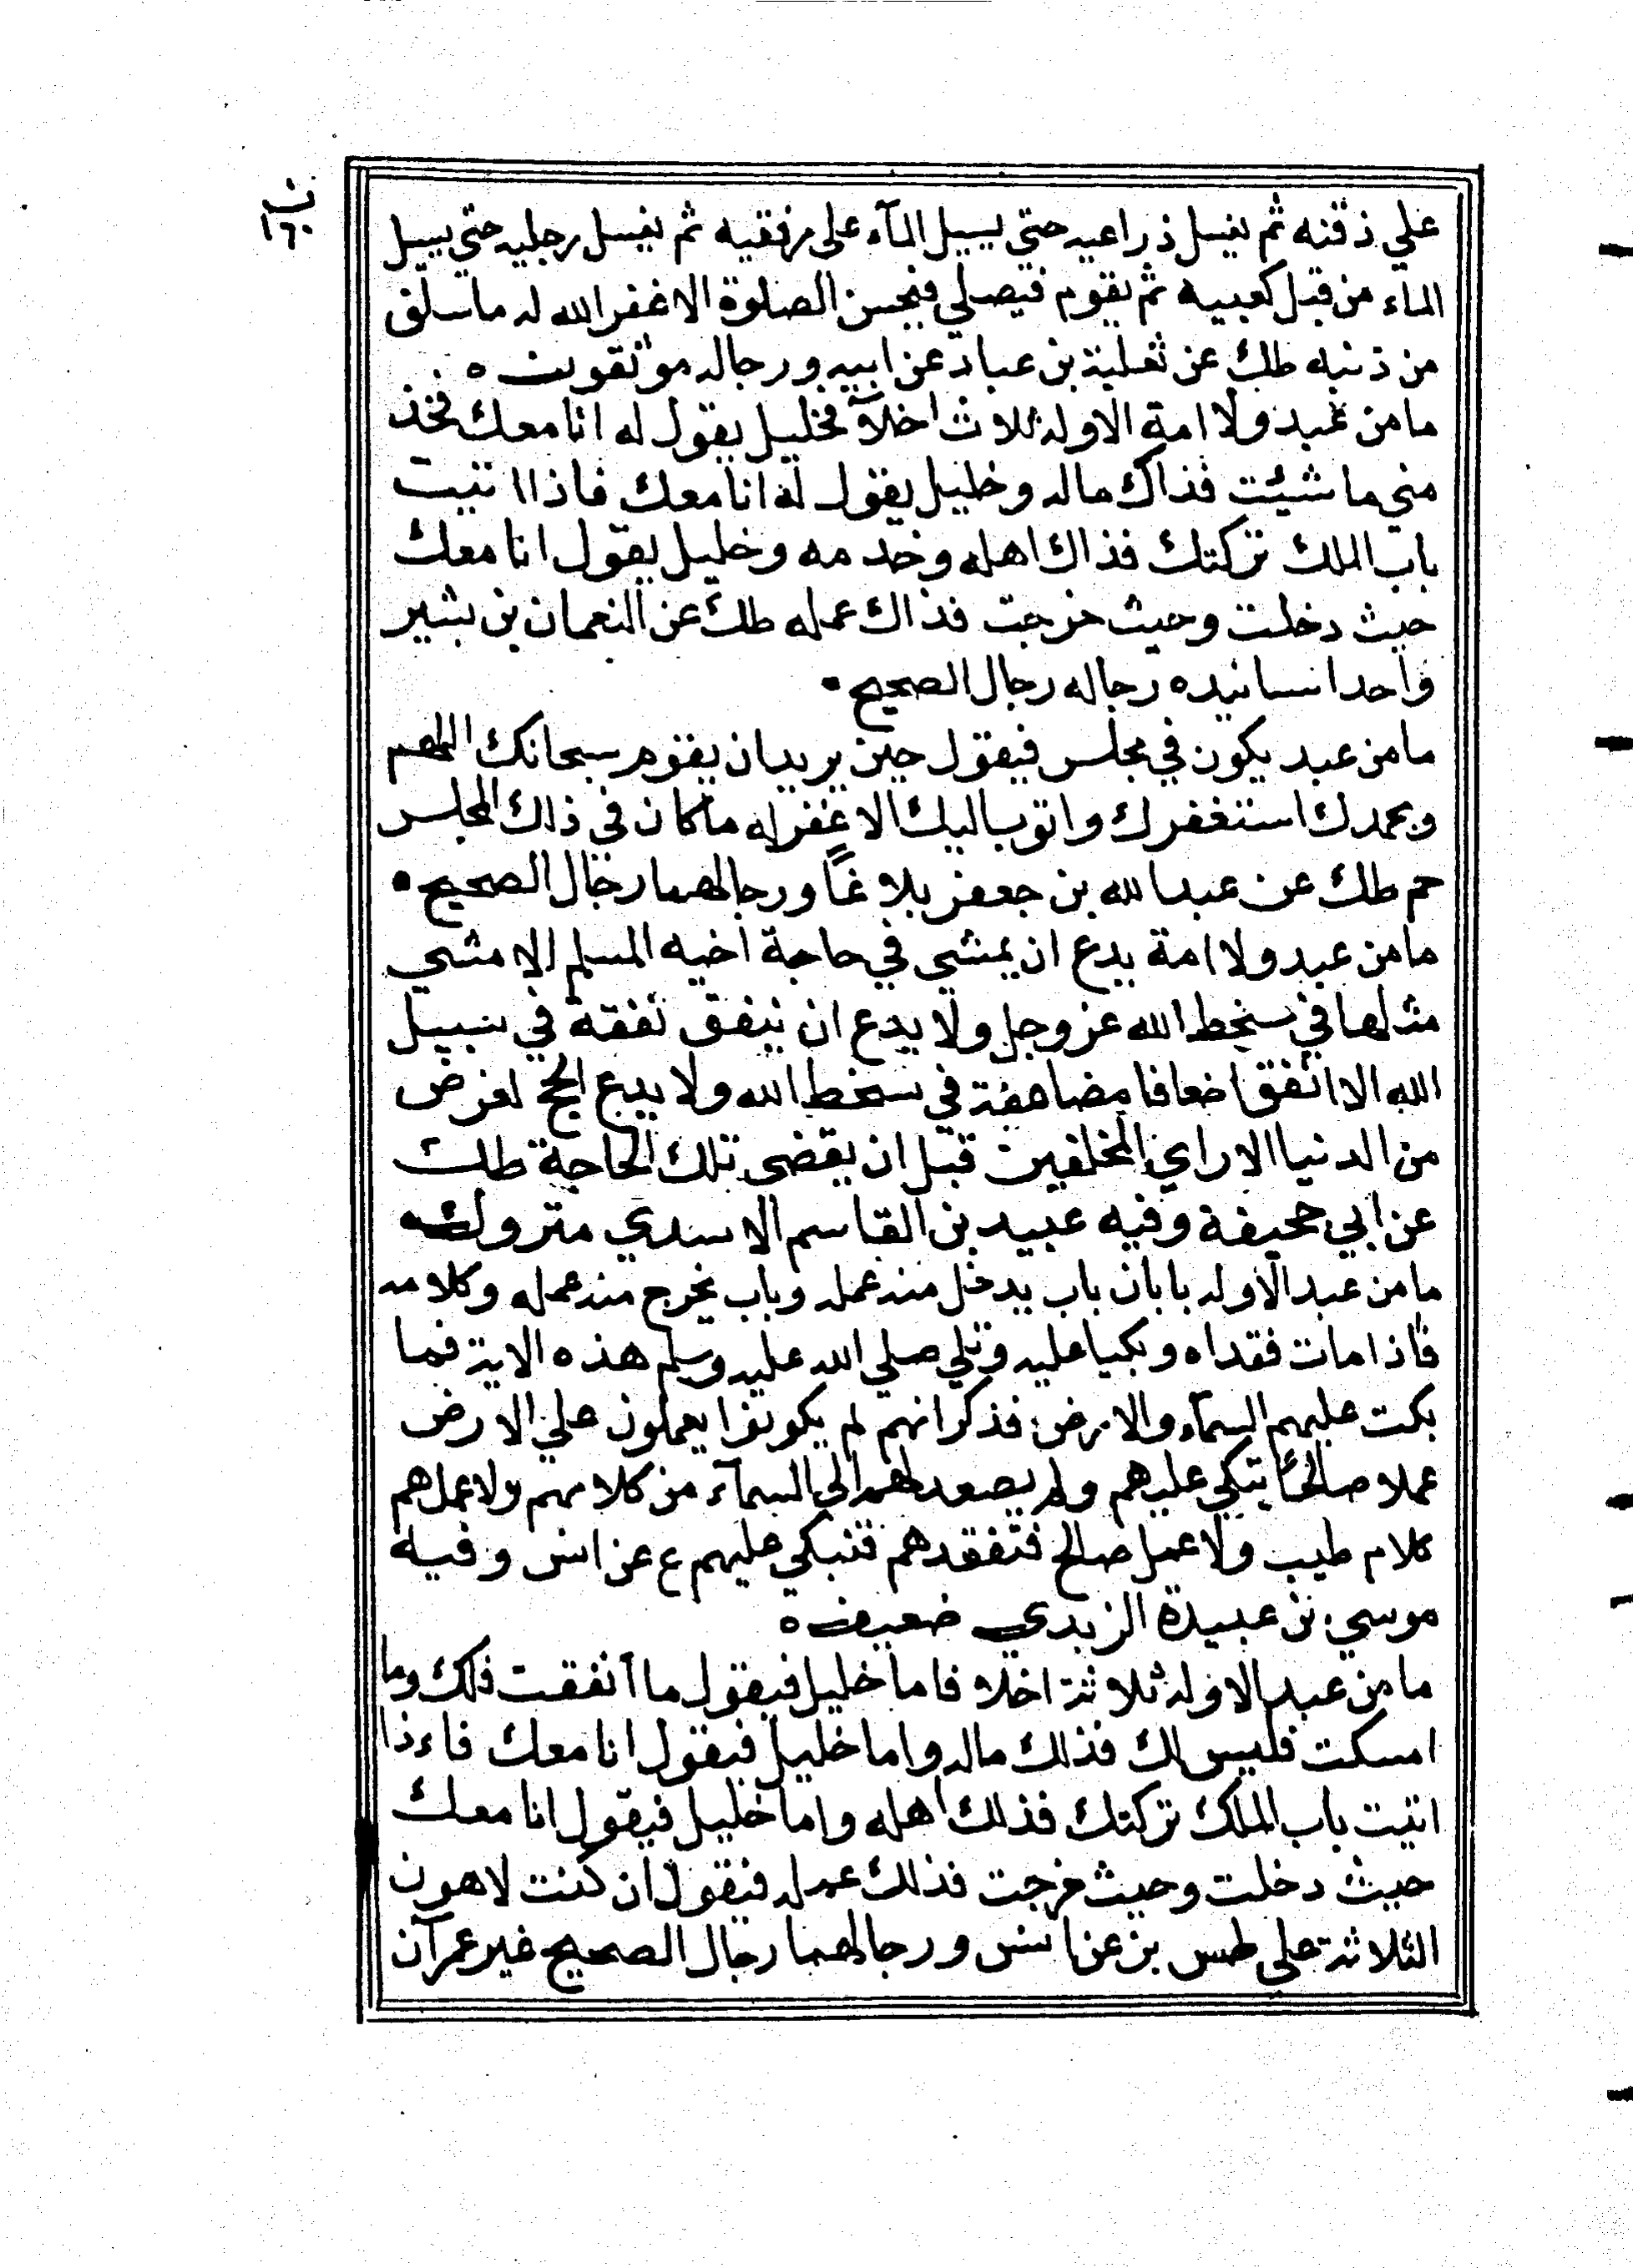 ب
١٦٠
علي ذقنه ثم يغسل ذراعيه حتي يسيل المآء على مرفقيه ثم يغسل رجليه حتي يسيل
الماء من قبل كعبيه ثم يقوم فيصلي فيحسن الصلوة الا غفر الله له ما سلف
من ذنبه طك عن ثعلبة بن عباد عن ابيه ورجاله موثقون ه
ما من عبد ولا امة الا وله ثلاث اخلآء فخليل يقول له انا معك فخذ
مني ما شئت فذاك ماله وخليل يقول له انا معك فاذا اتيت
باب الملك تركتك فذاك اهله وخدمه وخليل يقول انا معك
حيث دخلت وحيث خرجت فذاك عمله طك عن النعمان بن بشير
واحد اسانيده رجاله رجال الصحيح •
ما من عبد يكون في مجلس فيقول حين يريد ان يقوم سبحانك اللهم
وبحمدك استغفرك واتوب اليك الا غفر له ما كان في ذلك المجلس
حم طك عن عبد الله بن جعفر بلاغًا ورجالهما رجال الصحيح •
ما من عبد ولا امة يدع ان يمشي في حاجة اخيه المسلم الا مشي
مثلها في سخط الله عز وجل ولا يدع ان ينفق نفقة في سبيل
الله الا انفق اضعافا مضاعفة في سخط الله ولا يدع الحج لغرض
من الدنيا الا راي المخلفين قبل ان يقضى تلك الحاجة طك
عن ابي جحيفة وفيه عبيد بن القاسم الاسدي متروك •
ما من عبد الا وله بابان باب يدخل منه عمله وباب يخرج منه عمله وكلامه
فاذا مات فقداه وبكيا عليه وتلي صلي الله عليه وسلم هذه الاية فما
بكت عليهم السمآء والارض فذكر انهم لم يكونوا يعملون علي الارض
عملا صالحًا يتبكي عليهم ولم يصعد لهم الي السمآء من كلامهم ولا عملهم
كلام طيب ولا عمل صالح فتفقدهم فتبكي عليهم ع عن انس وفيه
موسي بن عبيدة الزبدي ضعيف ه
ما من عبد الا وله ثلاثة اخلاء فاما خليل فيقول ما انفقت فلك وما
امسكت فليس لك فذلك ماله واما خليل فيقول انا معك فاءذا
اتيت باب الملك تركتك فذلك اهله واما خليل فيقول انا معك
حيث دخلت وحيث خرجت فذلك عمله فيقول ان كنت لاهون
الثلاثة علي طس بز عن انس ورجالهما رجال الصحيح غير عمران